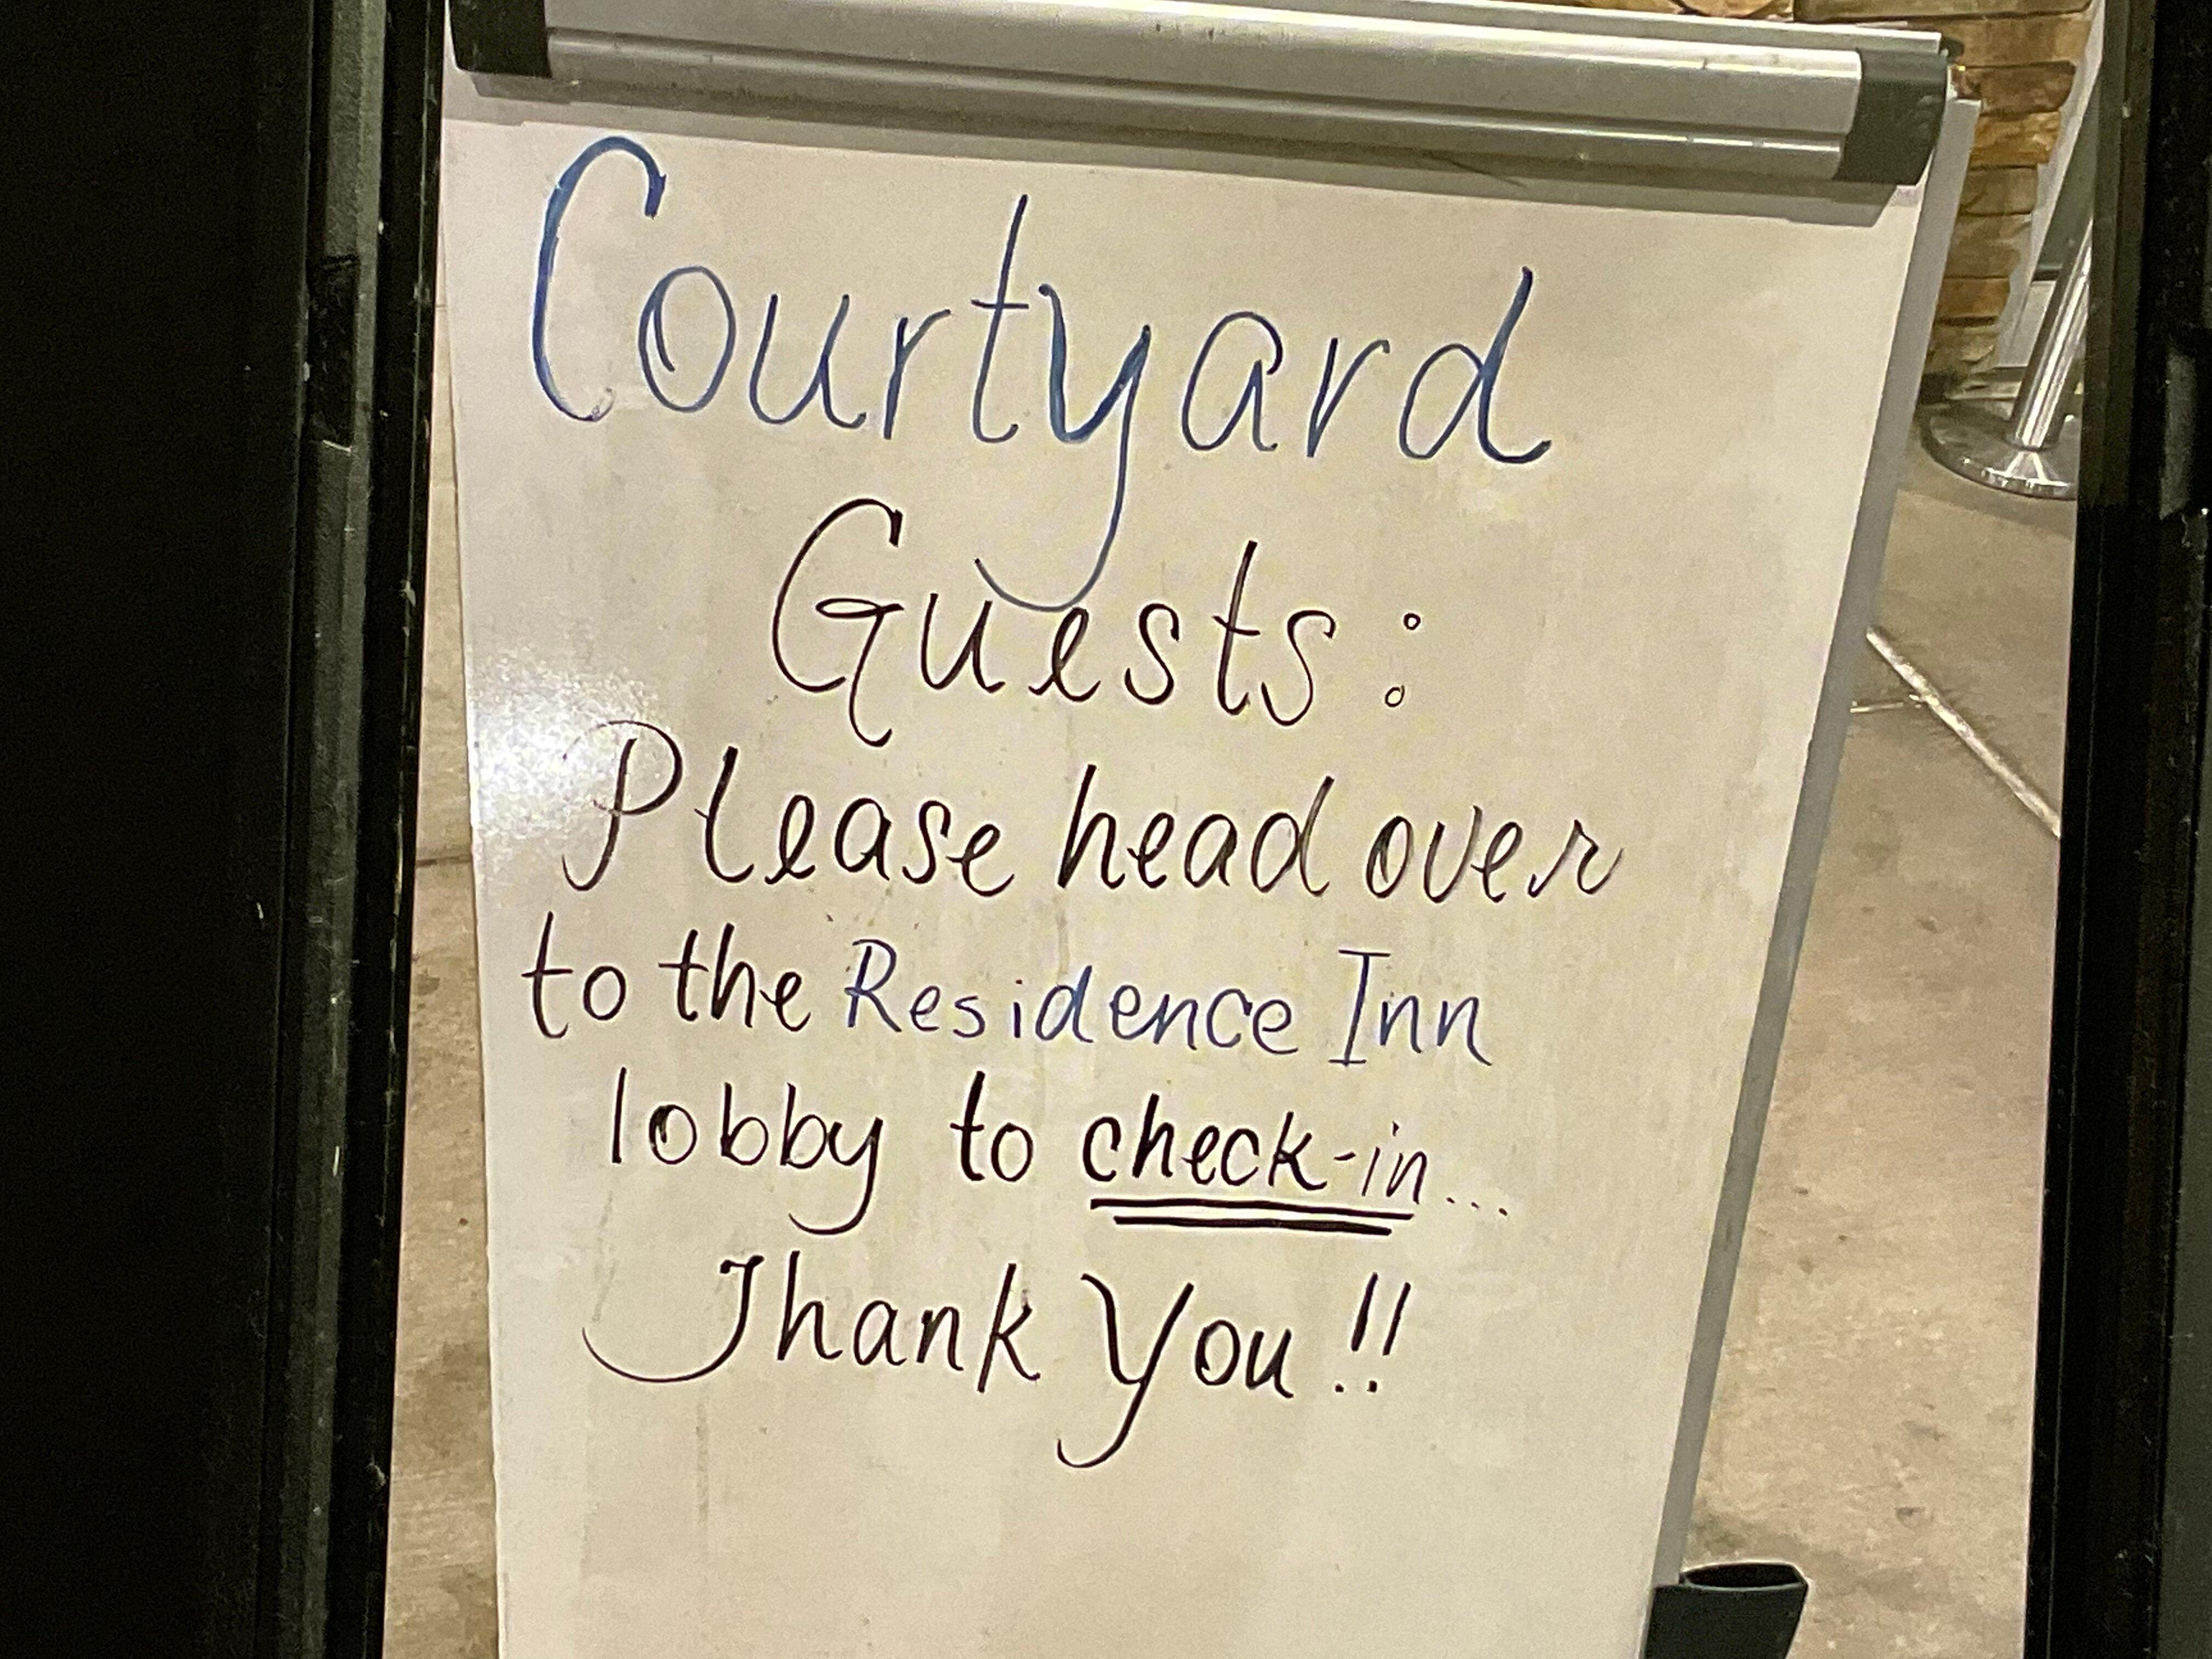 Courtyard
Guests:
Please head over
to the Residence Inn
lobby to check-in...
Thank You!!